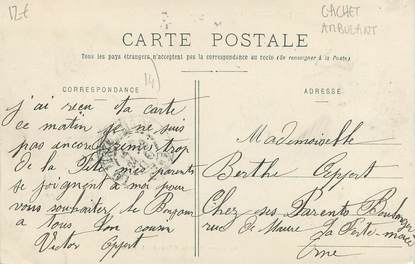 12€
CACHET
AMBULANT
CARTE POSTALE
Tous les pays étrangers n'acceptent pas la correspondance au recto (Se renseigner à la Poste)
14
CORRESPONDANCE
ADRESSE
j'ai reçu ta carte
ce matin je ne suis
pas encore remis trop
de la fête mes parents
se joignent à moi pour
vous souhaiter le Bonjour
a tous Ton cousin
Victor Appert
Mademoiselle
Berthe Appert
Chez ses Parents Boulanger
rue de La Ferté-macé
Orne